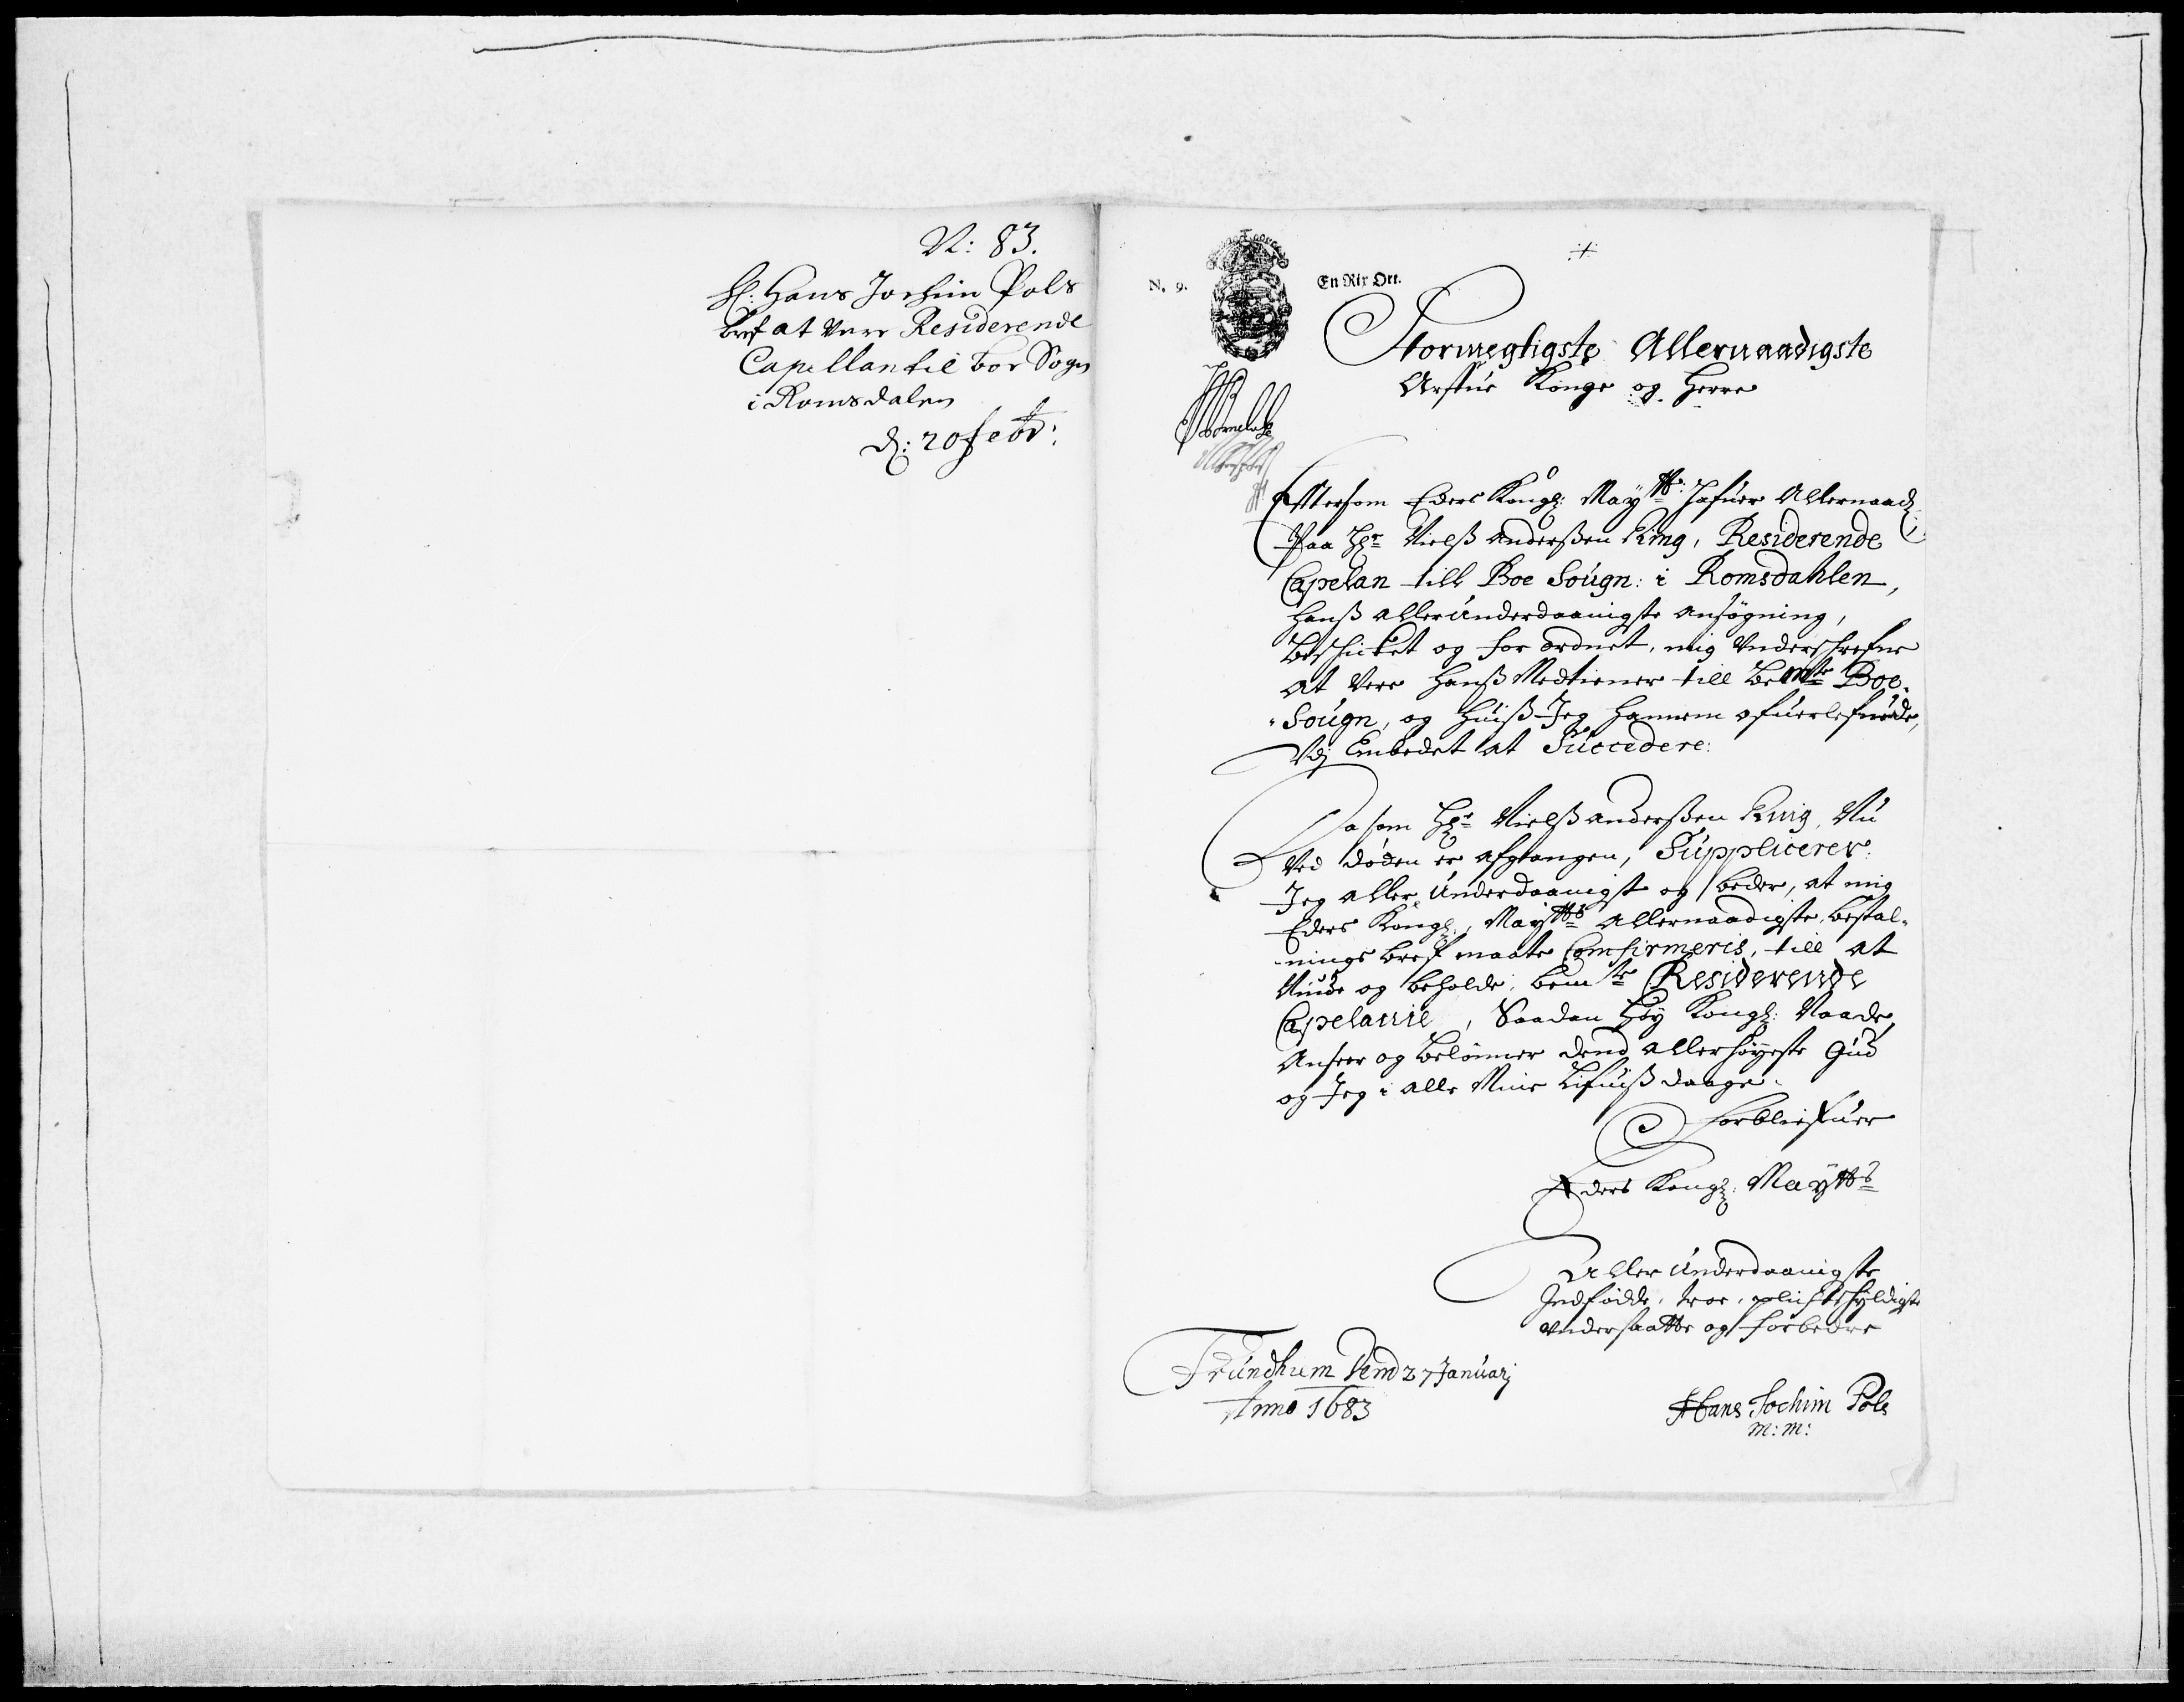 N: 83.
H: Hans Jochim Pols
bref at vere Residerende
Capellan til Boe Sogn
i Romsdalen
d: 20 febr:
N. 9.
En Rix Ort.
Stormegtigste Allernaadigste
Arffue Konge og Herre
Efftersom Eders Kongl: Maytt: hafuer Allernaadl:
Paa Hr Nielß Anderßen Ring, Residerende
Capelan till Boe Sougn: i Romsdahlen,
Hanß allerunderdaanigste ansøgning,
Beschicket og forordnet, mig Underschrefne
at Vere Hanß Medtiener till Bemte Boe
Sougn, og Huiß Jeg Hannem ofuerlefuede,
Udj Embedet at Succedere:
Da som Hr Nielß Anderßen Ring, Nu
Ved døden er afgangen, Supplicerer
Jeg aller Underdaanigst og beder, at mig
Eders Kongl: Maytts Allernaadigste bestal-
nings bref maate Comfirmeris, till at
Niude og beholde, bemte Residerende
Capelanie, Saadan Høy Kongl: Naade,
Anseer og Belønner dend allerhøyeste Gud
og Jeg i alle Mine Lifuiß daage.
forbliefuer
Eders Kongl: Maytts
Aller Underdaanigste
Indfødde, troe, plichtschyldigste
Undersaatte og forbedre
Trundhiem Dend 27 Januarj
Anno 1683
Hans Jochim Pols
m: m: